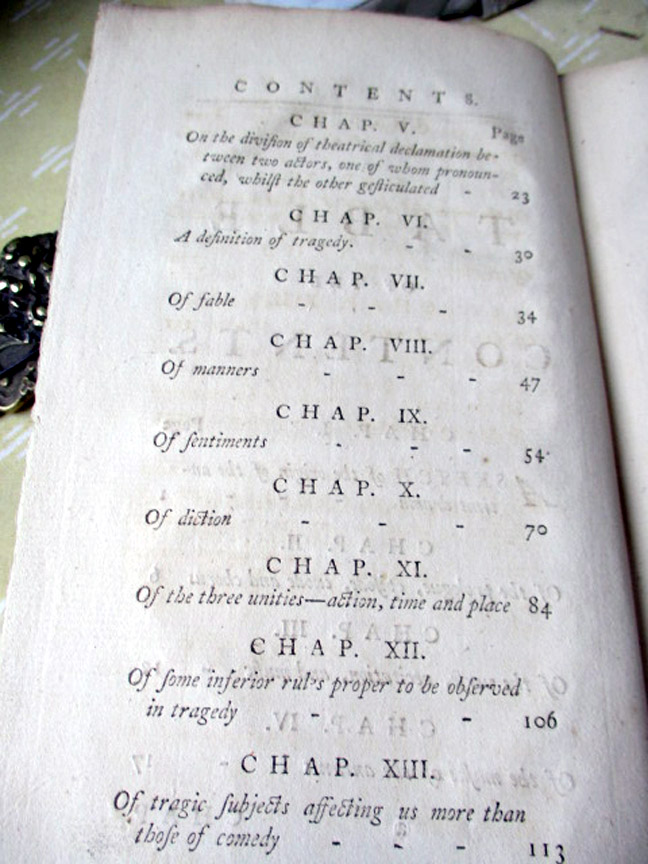 CONTENTS.
CHAP. V. Page
On the diviſion of theatrical declamation be-
tween two actors, one of whom pronoun-
ced, whilſt the other geſticulated - 23
CHAP. VI.
A definition of tragedy. - - 30
CHAP. VII.
Of fable - - - 34
CHAP. VIII.
Of manners - - - 47
CHAP. IX.
Of ſentiments - - - 54
CHAP. X.
Of diction - - - 70
CHAP. XI.
Of the three unities—action, time and place 84
CHAP. XII.
Of ſome inferior rules proper to be obſerved
in tragedy - - 106
CHAP. XIII.
Of tragic ſubjects affecting us more than
thoſe of comedy - - - 113